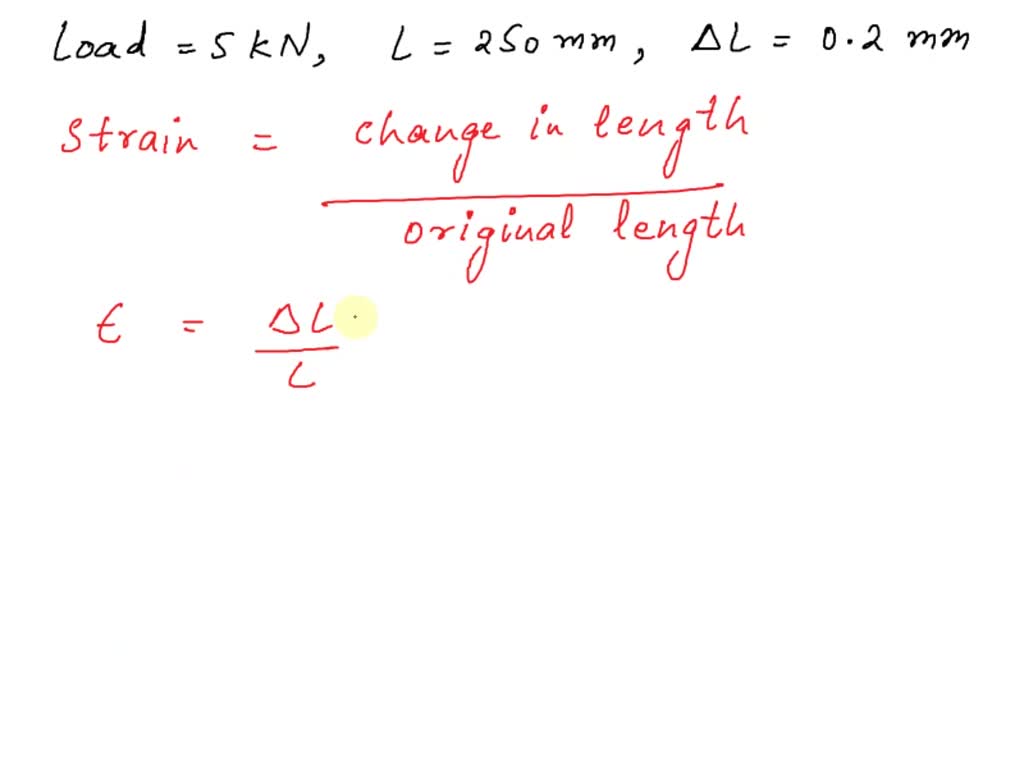 Load = 5 kN, L = 250 mm, ΔL = 0.2 mm
Strain = change in length
original length
ϵ = ΔL
L